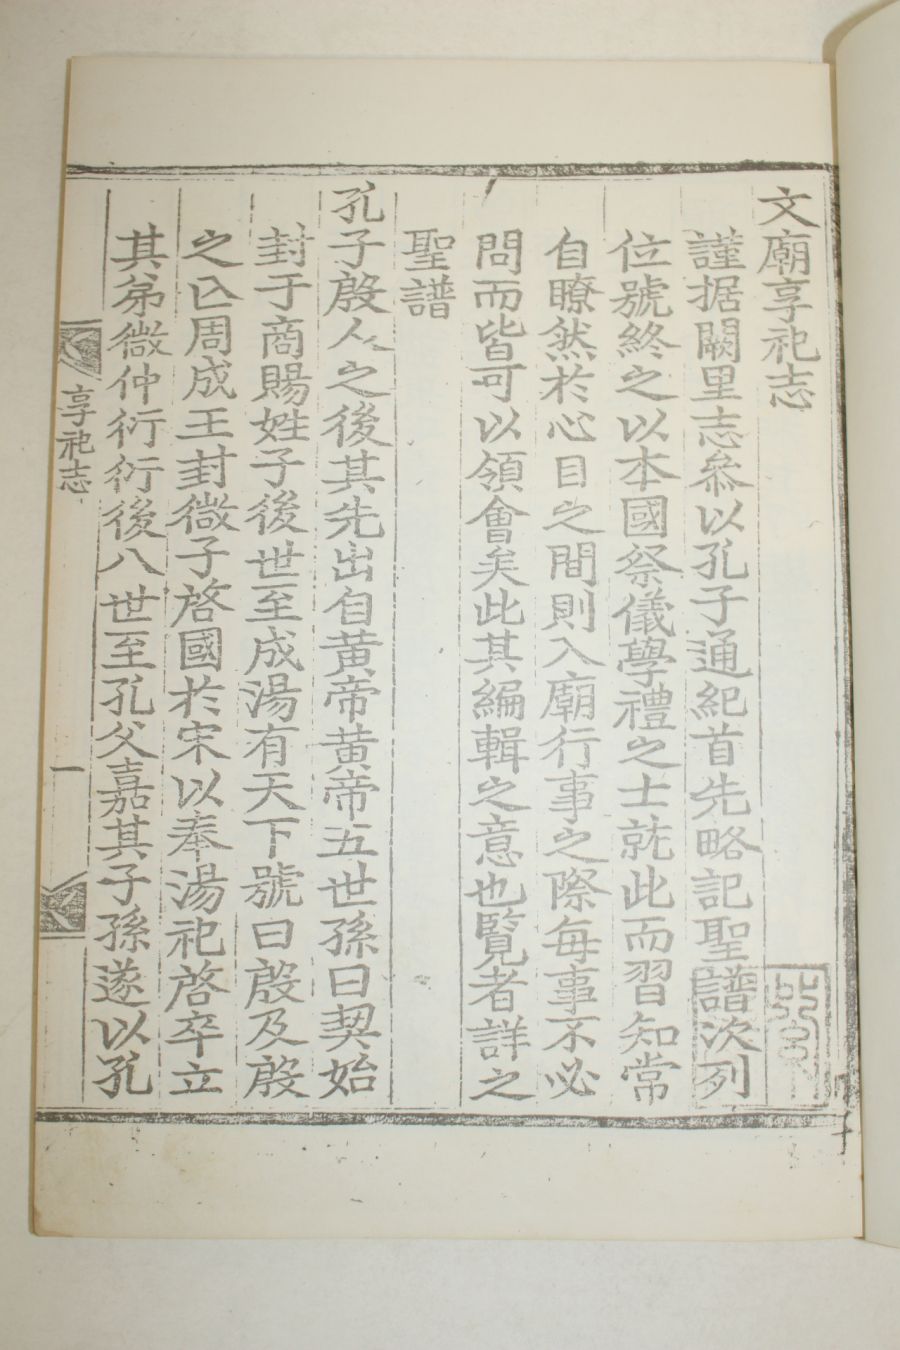 文廟享祀志
謹据闕里志叅以孔子通紀首先略記聖譜次列
位號終之以本國祭儀學禮之士就此而習知常
自瞭然於心目之間則入廟行事之際每事不必
問而皆可以領會矣此其編輯之意也覽者詳之
聖譜
孔子殷人之後其先出自黄帝黄帝五世孫曰契始
封于商賜姓子後世至成湯有天下號曰殷及殷
之亾周成王封微子啓國於宋以奉湯祀啓卒立
其弟微仲衍衍後八世至孔父嘉其子孫遂以孔
享祀志
一